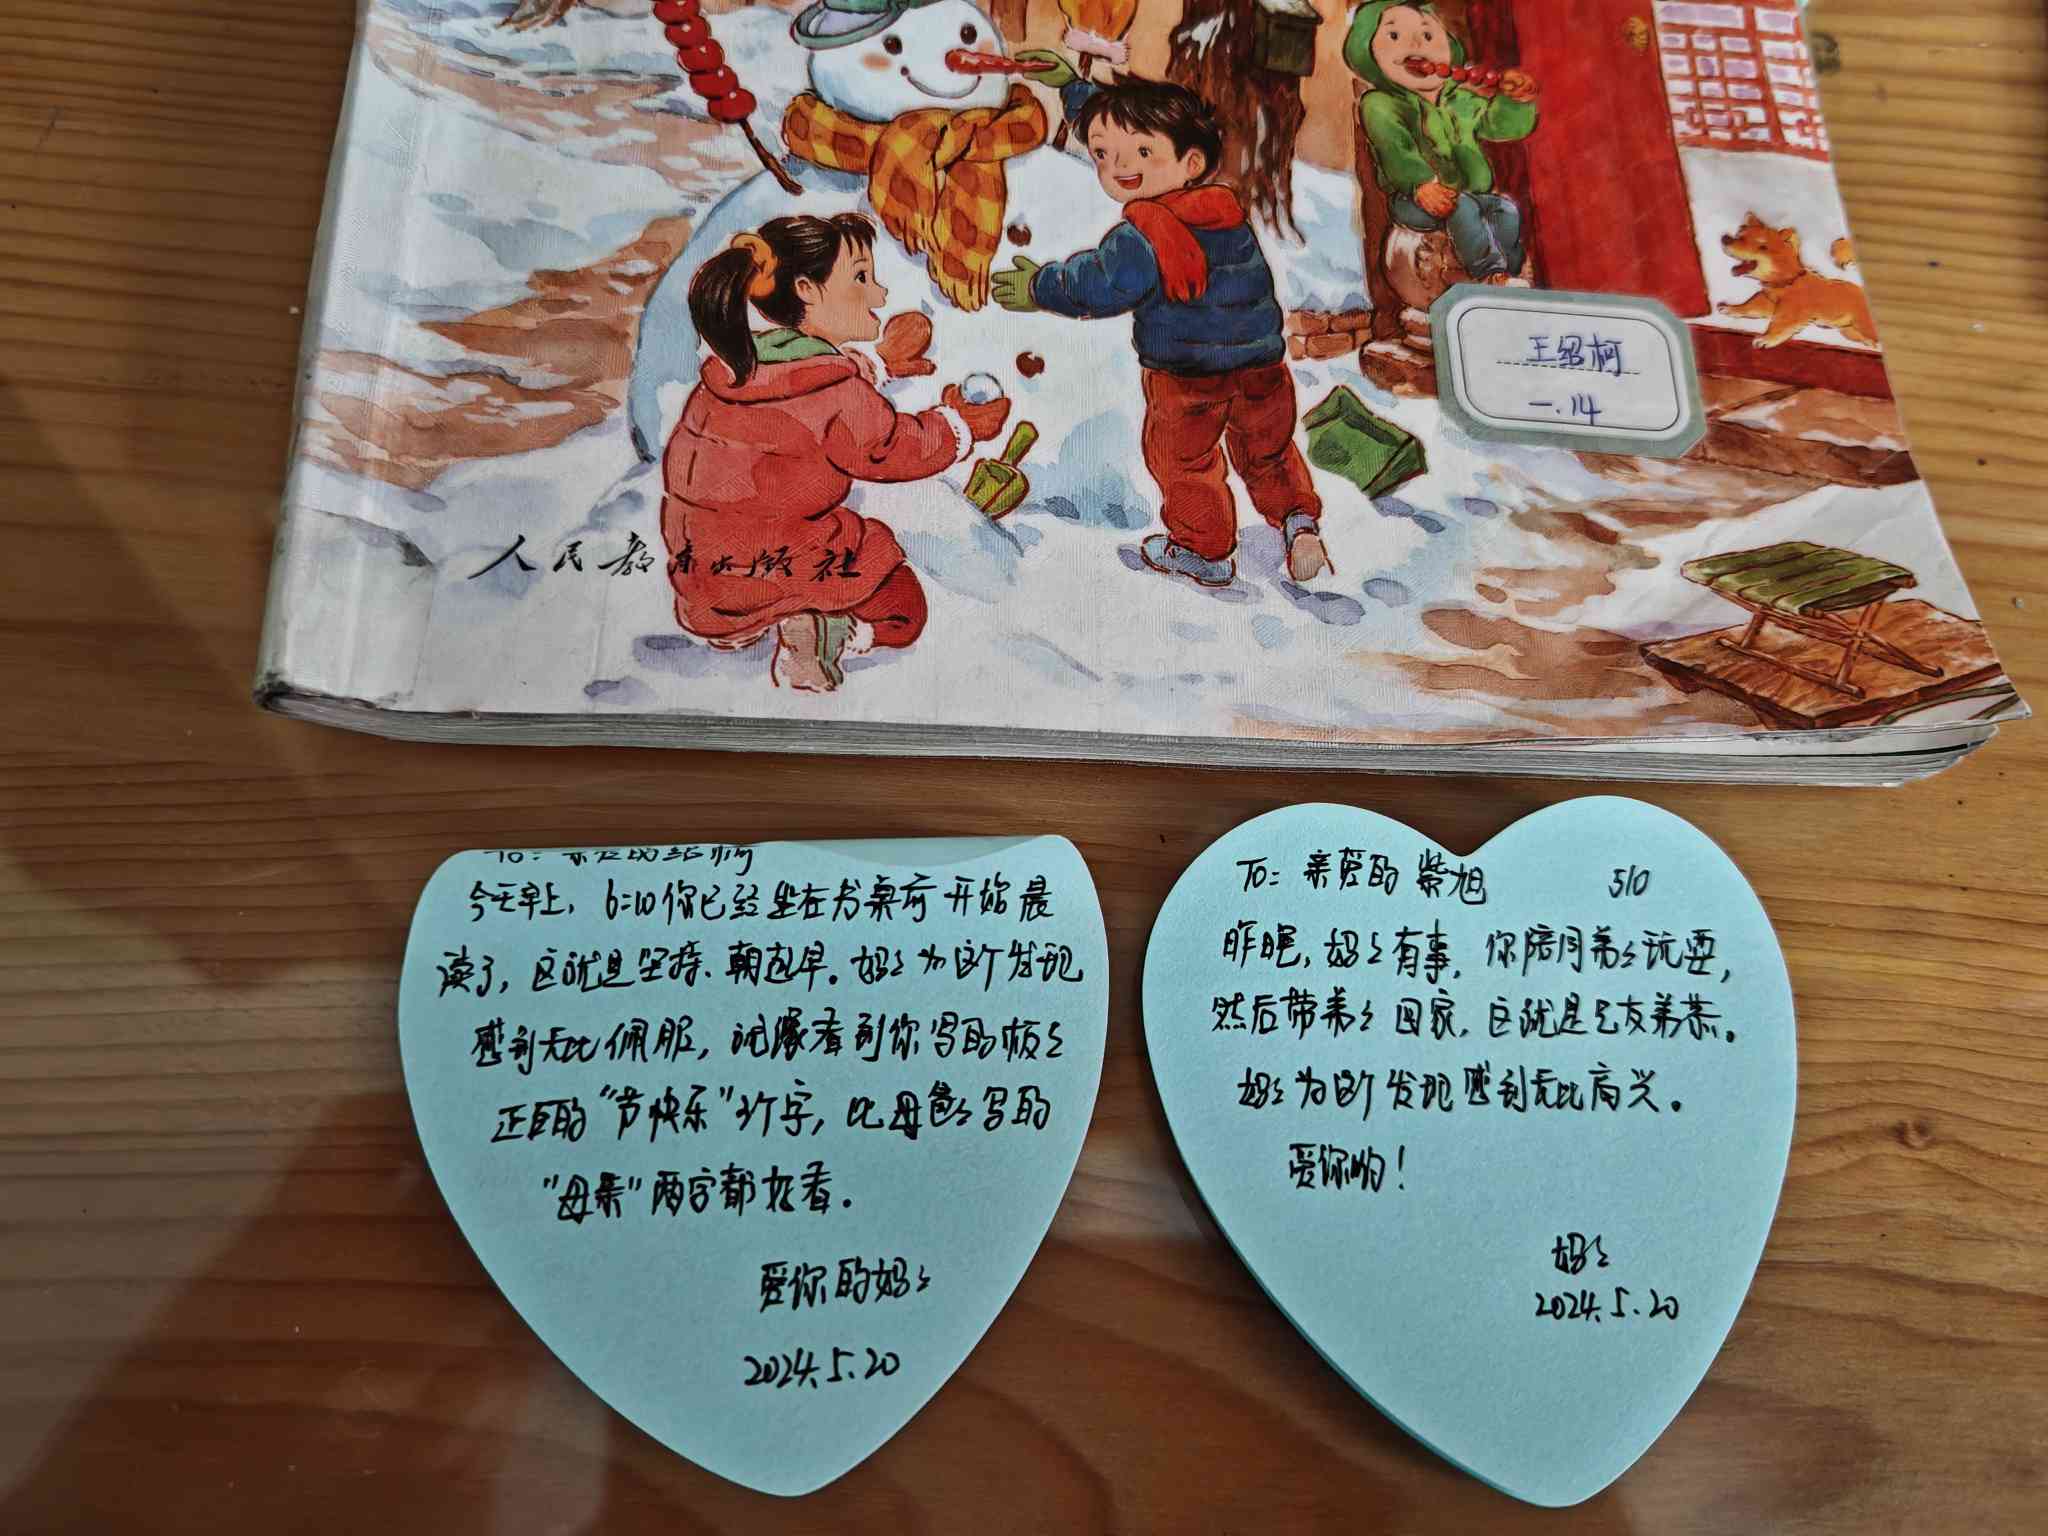 王绍柯
一.14
人民教育出版社
To: 亲爱的绍柯
今天早上，6:10你已经坐在书桌前开始晨
读了，这就是坚持、朝起早。妈妈为这个发现
感到无比佩服，就像看到你写的板板
正正的“节快乐”3个字，比母爸爸写的
“母亲”两字都好看。
爱你的妈妈
2024.5.20
To: 亲爱的紫旭 510
昨晚，妈妈有事，你陪同弟弟玩耍，
然后带弟弟回家，这就是兄友弟恭。
妈妈为这个发现感到无比高兴。
爱你哟！
妈妈
2024.5.20